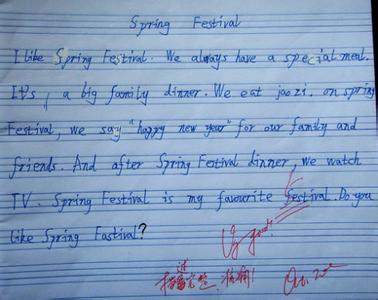 Spring Festival
I like Spring Festival. We always have a special meal.
It's, a big family dinner. We eat jaozi. on spring
Festival, we say "happy new year" for our family and
friends. And after Spring Festival dinner, we watch
TV. Spring Festival is my favourite festival. Do you
like Spring Fastival?
Very good!
Oct. 20